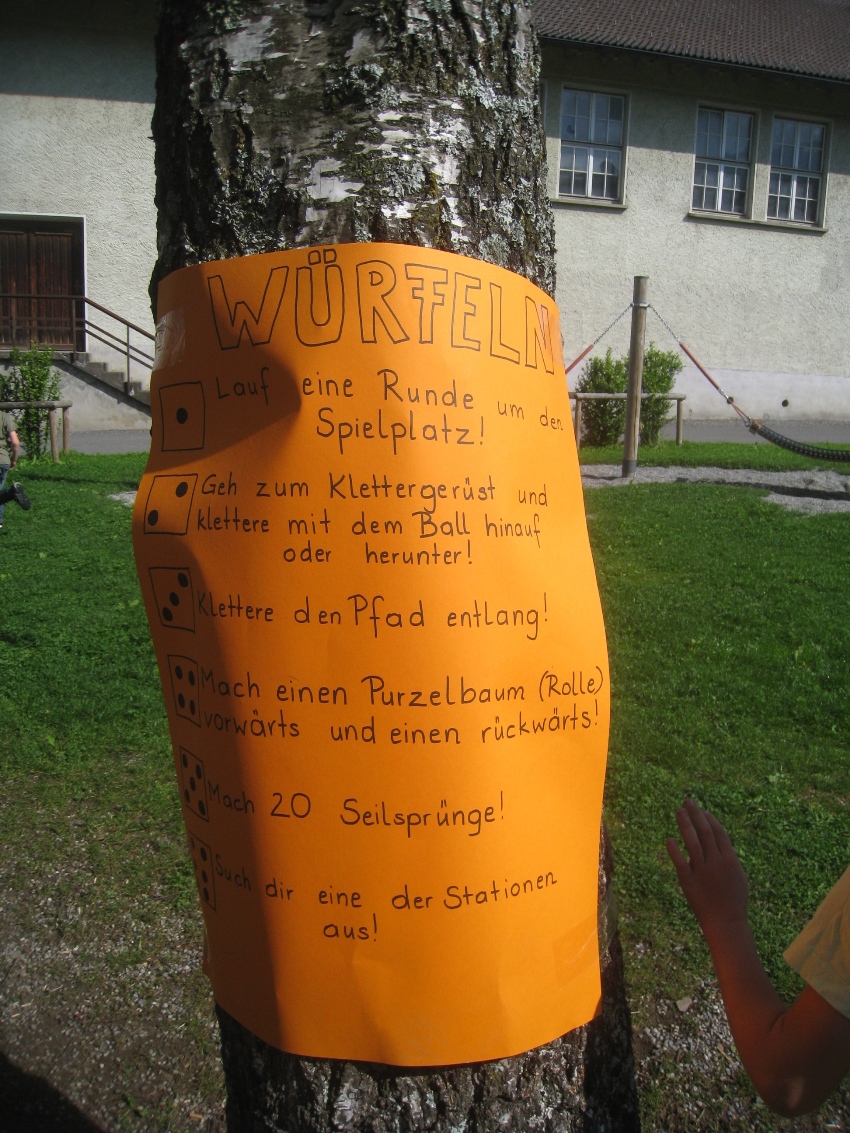 WÜRFELN
Lauf eine Runde um den
Spielplatz!
Geh zum Klettergerüst und
klettere mit dem Ball hinauf
oder herunter!
Klettere den Pfad entlang!
Mach einen Purzelbaum (Rolle)
vorwärts und einen rückwärts!
Mach 20 Seilsprünge!
Such dir eine der Stationen
aus!